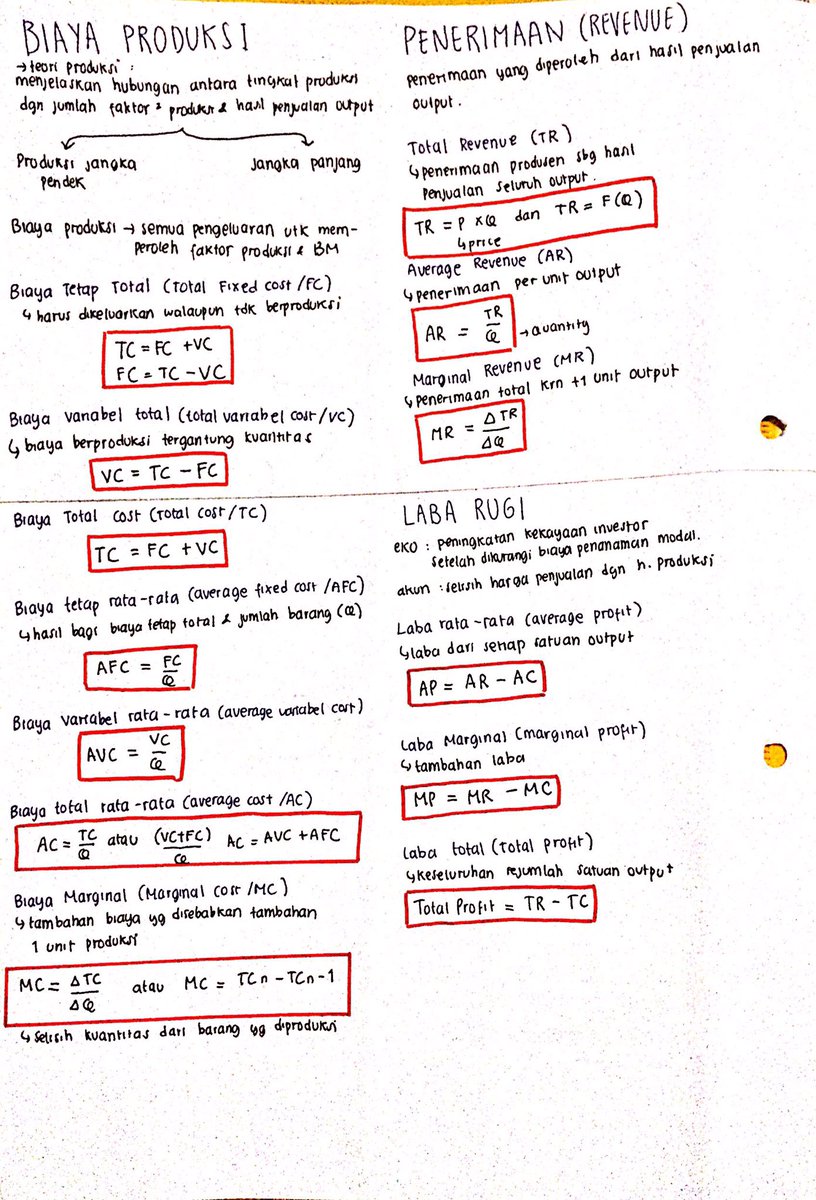 BIAYA PRODUKSI
→ teori produksi :
menjelaskan hubungan antara tingkat produksi
dgn jumlah faktor² produksi & hasil penjualan output
Produksi jangka
pendek
Jangka panjang
Biaya produksi → semua pengeluaran utk mem-
peroleh faktor produksi & BM
Biaya Tetap Total (Total Fixed cost /FC)
↳ harus dikeluarkan walaupun tdk berproduksi
TC = FC + VC
FC = TC - VC
Biaya variabel total (total variabel cost/VC)
↳ biaya berproduksi tergantung kuantitas
VC = TC - FC
Biaya Total Cost (Total cost/TC)
TC = FC + VC
Biaya tetap rata-rata (average fixed cost /AFC)
↳ hasil bagi biaya tetap total & jumlah barang (Q)
AFC = FC/Q
Biaya variabel rata-rata (average variabel cost)
AVC = VC/Q
Biaya total rata-rata (average cost /AC)
AC = TC/Q atau (VC+FC)/Q AC = AVC + AFC
Biaya Marginal (Marginal cost /MC)
↳ tambahan biaya yg disebabkan tambahan
1 unit produksi
MC = ΔTC/ΔQ atau MC = TCn - TCn-1
↳ selisih kuantitas dari barang yg diproduksi
PENERIMAAN (REVENUE)
penerimaan yang diperoleh dari hasil penjualan
output.
Total Revenue (TR)
↳ penerimaan produsen sbg hasil
penjualan seluruh output.
TR = P x Q dan TR = F(Q)
↳ price
Average Revenue (AR)
↳ penerimaan per unit output
AR = TR/Q → Quantity
Marginal Revenue (MR)
↳ penerimaan total krn +1 unit output
MR = ΔTR/ΔQ
LABA RUGI
eko : peningkatan kekayaan investor
setelah dikurangi biaya penanaman modal.
akun : selisih harga penjualan dgn h. produksi
Laba rata-rata (average profit)
↳ laba dari setiap satuan output
AP = AR - AC
Laba Marginal (marginal profit)
↳ tambahan laba
MP = MR - MC
Laba total (Total profit)
↳ keseluruhan sejumlah satuan output
Total Profit = TR - TC